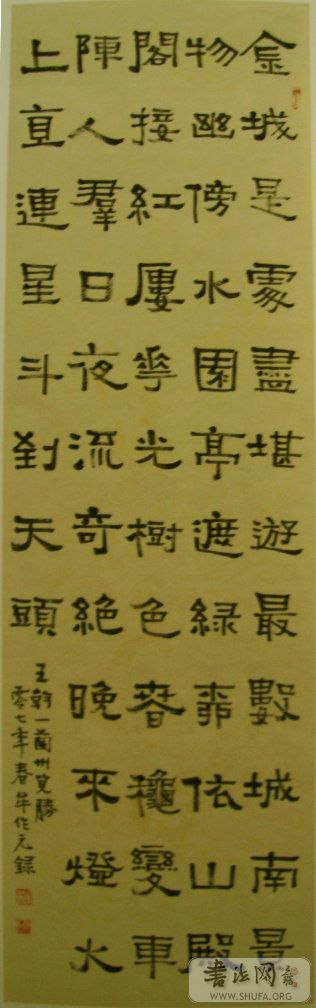 金城是處盡堪遊最數城南景
物幽傍水園亭遮綠依山殿
閣接紅廔花光樹色春穐變車
陳人羣日夜流奇絕晚來燈火
上直連星斗到天頭
王幹一蘭州覽勝
零七年春牟作元錄
書法网
WWW.SHUFA.ORG